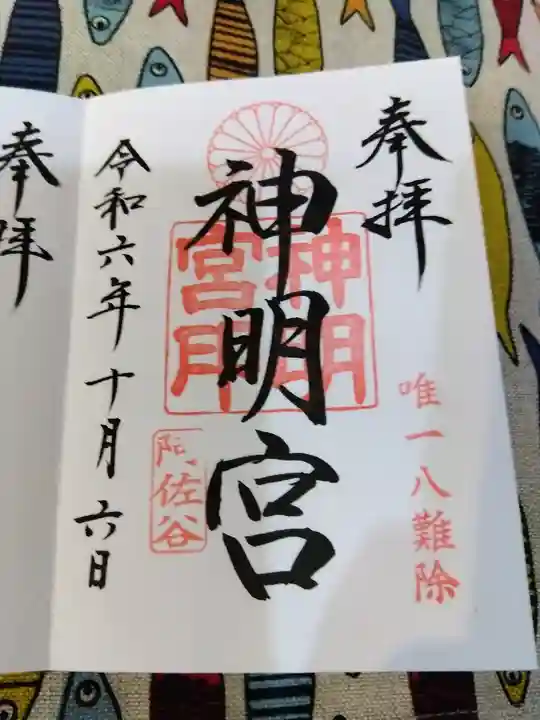 奉拝
唯一八難除
神明宮
阿佐谷
令和六年十月六日
奉拝